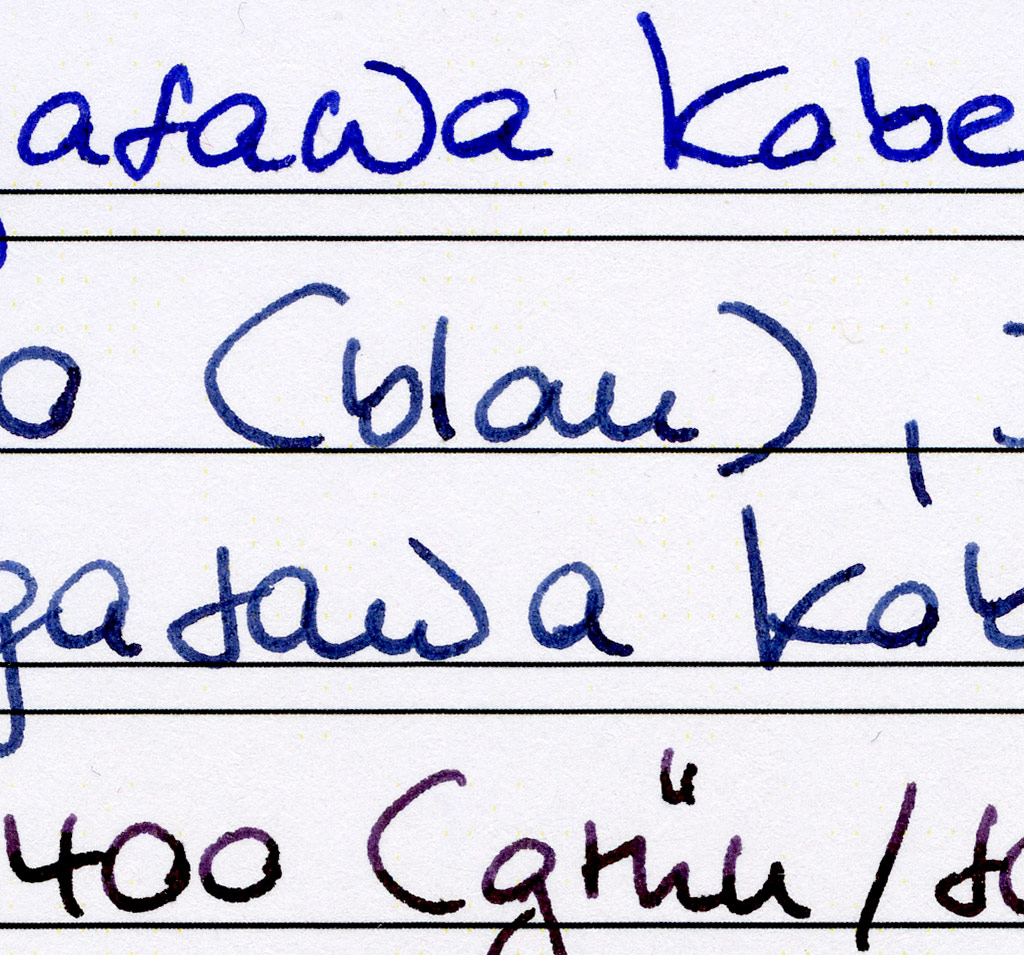 asawa Kobe
0 (blau),
gasawa Kob
400 (grün/